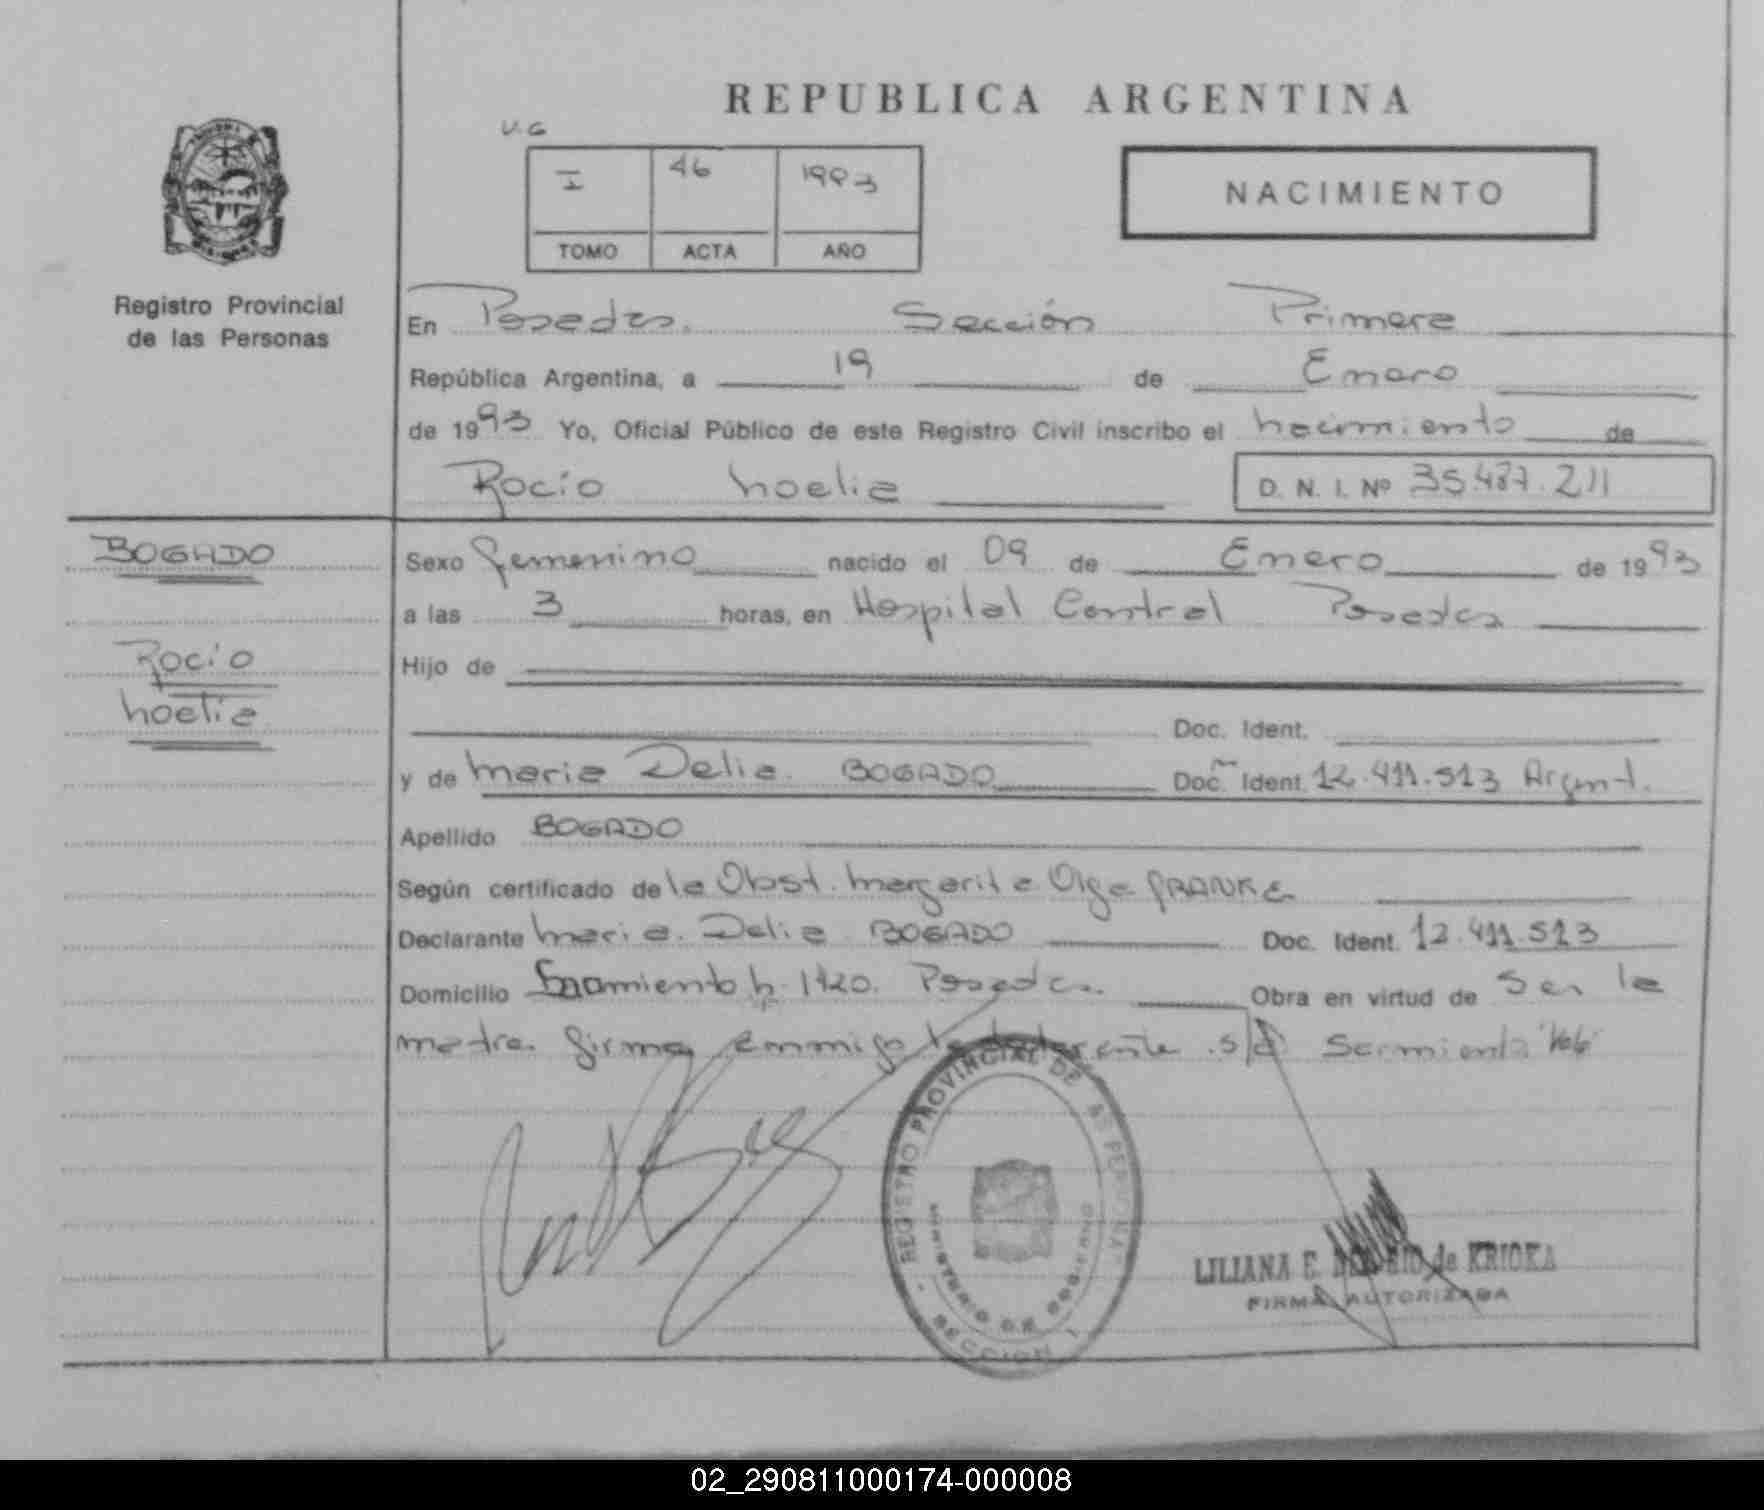 REPUBLICA ARGENTINA
V.G
I 46 1993
TOMO ACTA AÑO
NACIMIENTO
Registro Provincial
de las Personas
En Posadas. Sección Primera
República Argentina, a 19 de Enero
de 1993 Yo, Oficial Público de este Registro Civil inscribo el nacimiento de
Rocio Noelia D. N. I. Nº 35.487.211
BOGADO
Rocio
Noelia
Sexo femenino nacido el 09 de Enero de 1993
a las 3 horas, en Hospital Central Posadas
Hijo de
Doc. Ident.
y de Maria Delia BOGADO Doc. Ident. 12.411.513 Argent.
Apellido BOGADO
Según certificado de la Obst. Margarita Olga FRANKE
Declarante Maria Delia BOGADO Doc. Ident. 12.411.513
Domicilio Posadas Obra en virtud de Ser la
madre. firma conmigo la s/d Sarmiento
REGISTRO PROVINCIAL DE LAS PERSONAS
MINISTERIO DE GOBIERNO
SECCION 1
LILIANA E. de KRIOKA
FIRMA AUTORIZADA
02_290811000174-000008